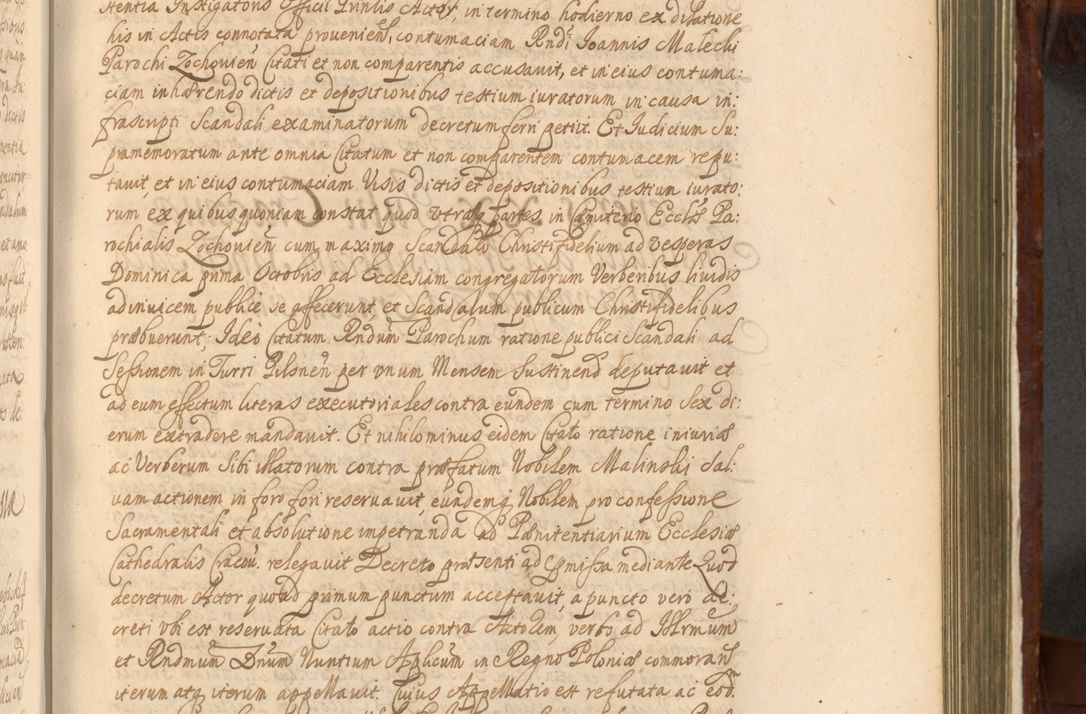 stentia Instigatoris Officii Sui Actor, in termino hodierno ex dilatione
his in Actis connotata provenien̄, contumaciam Rndi Ioannis Malechi
Parochi Zochovien̄ Citati et non comparentis accusavit, et in eius contuma:
ciam inhærendo dictis et depositionibus testium iuratorum in causa in:
frascripti Scandali examinatorum decretum ferri petiit. Et Iudicium Su:
pramemoratum ante omnia Citatum et non comparentem contumacem repu:
tavit, et in eius contumaciam Visis dictis et depositionibus testium iurato:
rum, ex quibus quoniam constat quod utraq partes in Cæmiterio Eccl̄s Pa:
rochialis Zochovien̄ cum maximo Scandalo Christifidelium ad vesperas
Dominica prima Octobris ad Ecclesiam congregatorum Verberibus lividis
adinvicem publice se affecerunt et Scandalum publicum Christifidelibus
præbuerunt; Ideo Citatum Rndum Parochum ratione publici Scandali ad
Sessionem in Turri Pilsnen̄ per unum Mensem Sustinend deputavit et
ad eum effectum literas executoriales contra eundem cum termino Sex di:
erum extradere mandavit. Et nihilominus eidem Citato ratione iniuriæ
ac Verberum Sibi illatorum contra præfatum Nobilem Malinski Sal:
vam actionem in foro fori reservavit, eundemq Nobilem pro confessione
Sacramentali et absolutione impetranda ad Pœnitentiarium Ecclesiæ
Cathedralis Cracov. relegavit Decreto præsenti ad præmissa mediante. Quod
decretum Actor quoad primum punctum acceptavit, a puncto vero de:
creti ubi est reservata Citato actio contra Actorem, verbo ad Illrmum
et Rndmum Dnum Nuntium Aplicum in Regno Poloniæ commoran̄
iterum atq iterum appellavit. Cuius Appellatio est refutata ac eod̄m